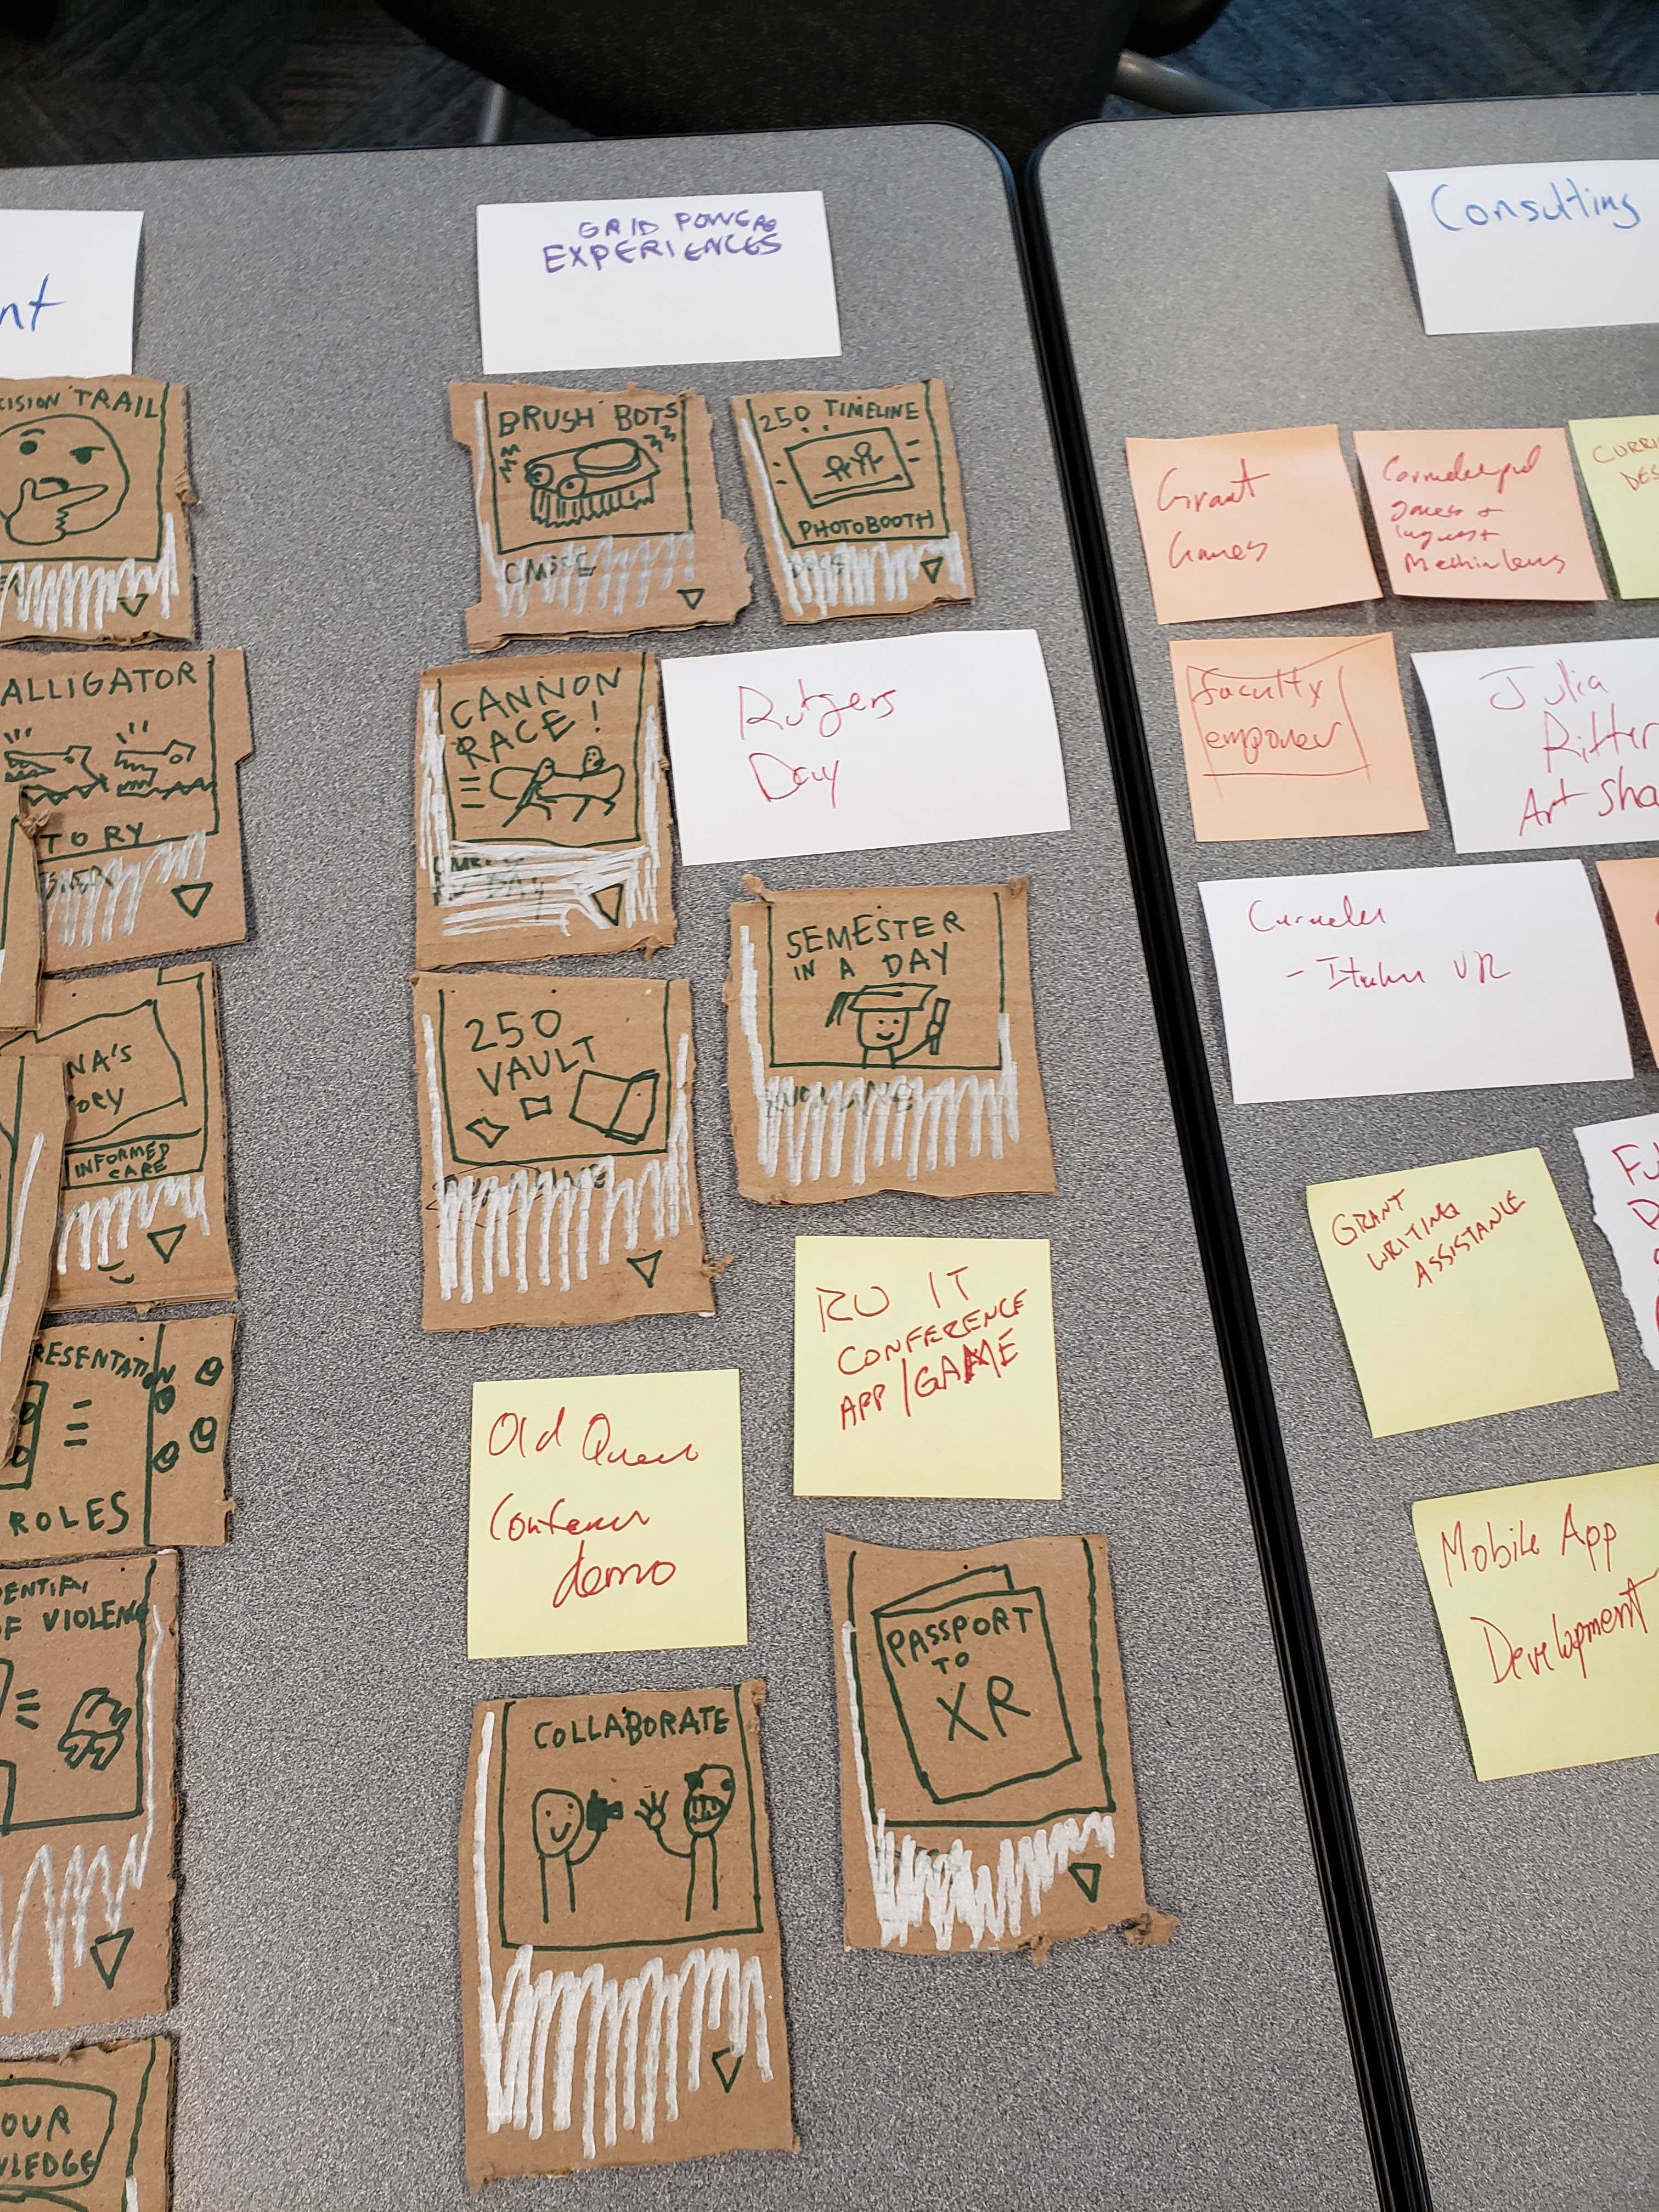 nt
CISION TRAIL
ALLIGATOR
TORY
NA'S
ORY
INFORMED
CARE
RESENTATION
ROLES
DENTIFY
OF VIOLENC
OUR
WLEDGE
GRID POWERED
EXPERIENCES
BRUSH BOTS
CMSCE
250 TIMELINE
PHOTOBOOTH
CANNON
RACE!
Rutgers
Day
250
VAULT
SEMESTER
IN A DAY
RU IT
CONFERENCE
APP/GAME
Old Queens
Conference
demo
PASSPORT
TO
XR
COLLABORATE
Consulting
Grant
Games
CURRI
DES
Faculty
empower
Julia
Ritter
Art Sha
VR
GRANT
WRITING
ASSISTANCE
Mobile App
Development